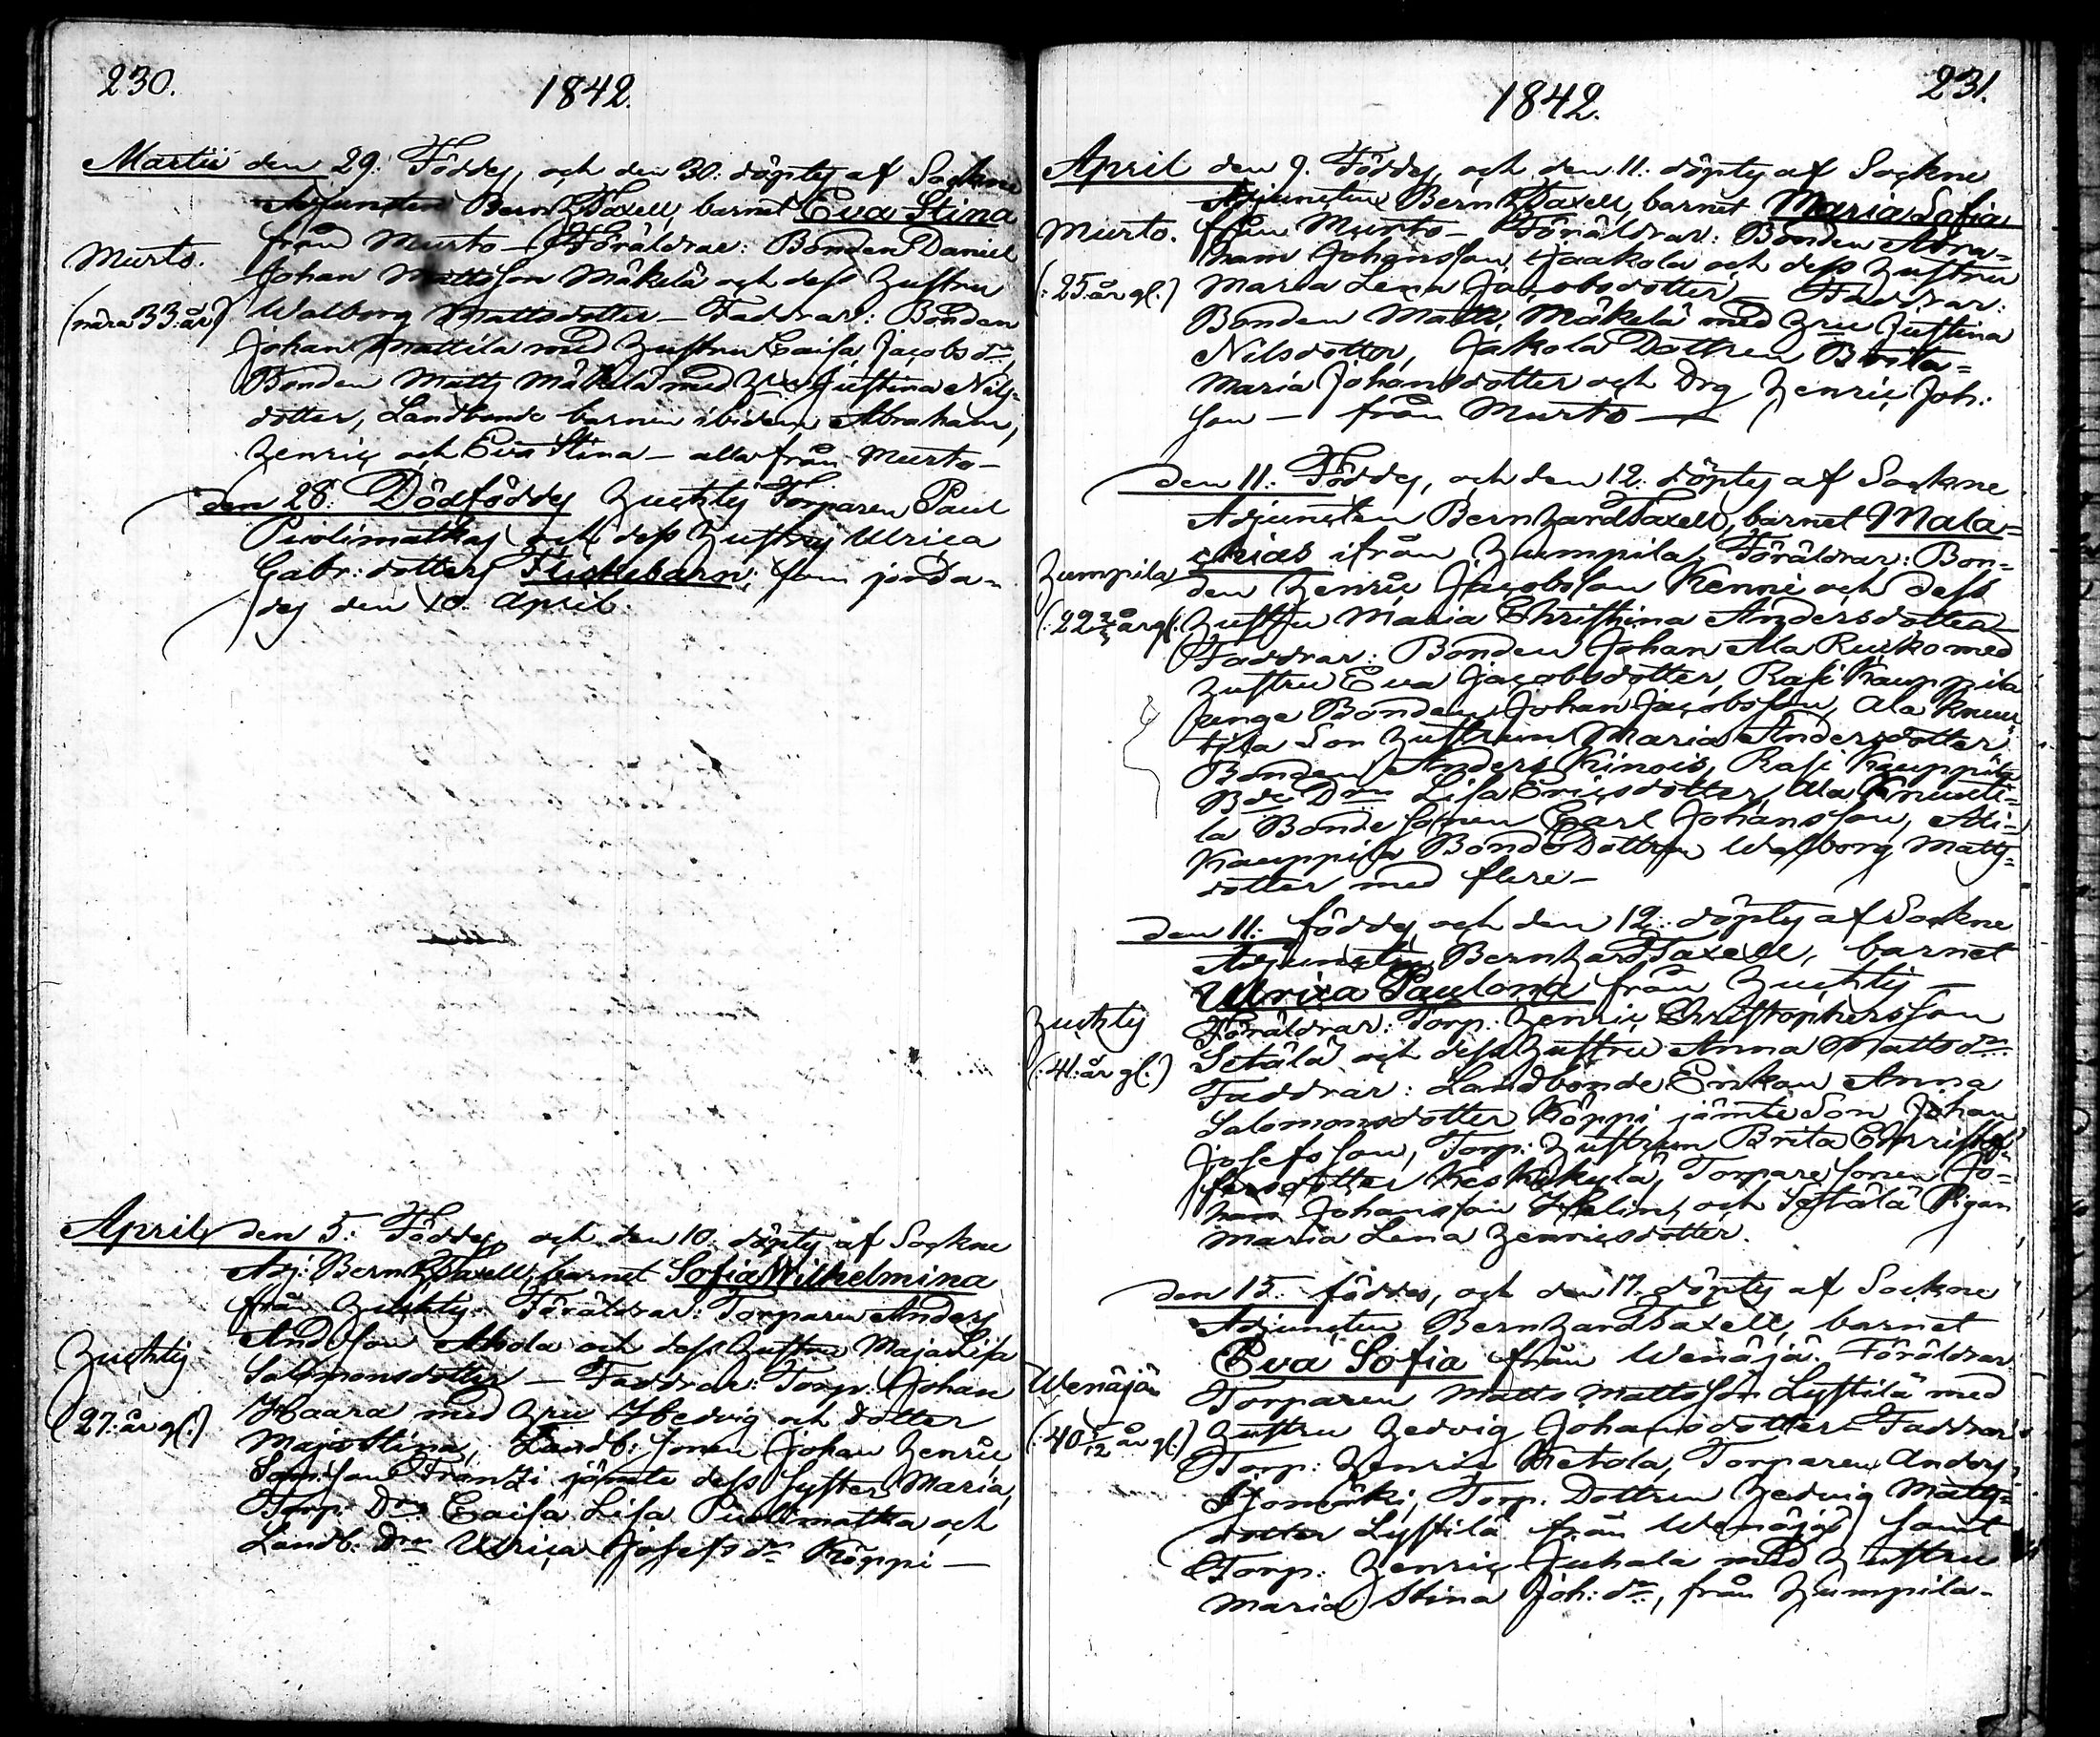 230.
1842.
Martii den 29. Föddes, och den 30. döptes af Sockne
Adjuncten Bernh. Taxell, barnet Eva Stina
från Murto — Föräldrar: Bonden Daniel
Murto.
Johan Mattsson Mäkelä och dess hustru
(nära 33. år)
Walborg Mattsdotter — Faddrar: Bonden
Johan Mattila med hustru Caisa Jacobs dr,
Bonden Matts Mäkelä med hru Justina Nils-
dotter, Landbonde barnen ibidem, Abraham,
Henric och Eva Stina — alla från Murto —
den 28. Dödföddes Huchtis Torparen Paul
Piolimatkas och dess hustrus Ulrica
Gabr: dotters Flickebarn; som jorda-
des den 10. April.
April den 5: Föddes, och den 10. döptes af Sockne
Adj: Bernh. Taxell, barnet Sofia Wilhelmina
från Huchtis. Föräldrar: Torparen Anders
And: Son Ahola och dess hustru Maja Lisa
Huchtis
Salomonsdotter — Faddrar: Torp. Johan
(27. år gl.)
Haara med hru Hedvig och dotter
Maja Stina, Landb: sonen Johan Henric
Sam: son Frantzi jämte dess syster Maria,
Torp: Dr. Caisa Lisa Piolimatka och
Landb: Dr Ulrica Josefs dr Köppi —
1842.
231.
April den 9. Föddes, och den 11. döptes af Sockne
Adjuncten Bernh. Taxell, barnet Maria Sofia
Murto.
från Murto — Föräldrar: Bonden Abra-
ham Johansson Jaakola och dess hustru
(: 25. år gl.)
Maria Lena Jacobsdotter — Faddrar:
Bonden Matts Mäkelä med hru Justina
Nilsdotter, Jakola Dottren Brita
Maria Johansdotter och Drg Henric Joh:
son — från Murto —
den 11. Föddes, och den 12. döptes af Sockne
Adjuncten Bernhard Taxell, barnet Mala-
chias ifrån Humpila, Föräldrar: Bon-
Humpila
den Henric Jacobsson Kenni och dess
(: 22 år gl.
hustru Maria Christina Andersdotter —
Faddrar: Bonden Johan Ala Rusko med
hustru Eva Jacobsdotter, Rasi Kauppila
unge Bonden Johan Jacobsson, Ala Knuu
tila Son hustrun Maria Andersdotter
Bonden Anders Kinois, Rasi Kauppila
Bde Drn Lisa Ericsdotter, Ala Knuuti-
la Bonde sonen Carl Johansson, Ali-
Kauppila Bonde Dottren Walborg Matts-
dotter med flere —
den 11. föddes, och den 12. döptes af Sockne
Adjuncten Bernhard Taxell, barnet
Ulrica Paulona från Huchtis —
Huchtis
Föräldrar: Torp: Henric Christophersson
Setälä och dess hustru Anna Matts dr.
(: 41. år gl.)
Faddrar: Landbonde Enkan Anna
Salomonsdotter Köppi jämte Son Johan
Josefsson, Torp: hustrun Brita Christof-
fersdotter Keskikylä, Torpare sonen Jo-
han Johansson Helin, och Setälä Pigan
Maria Lena Henricsdotter.
den 15. föddes, och den 17. döptes af Sockne
Adjuncten Bernhard Taxell, barnet
Eva Sofia från Wenäjä. Föräldrar
Wenäjä
Torparen Matts Mattsson Lystilä med
(: 40 5/12 år gl.)
hustru Hedvig Johansdotter — Faddrar:
Torp: Henric Ketola, Torparen Anders
Isomäki, Torp. Dottren Hedvig Matts-
dotter Lystilä från Wenäjä, samt
Torp: Henric Juhala med hustru
Maria Stina Joh: dr, från Humpila —